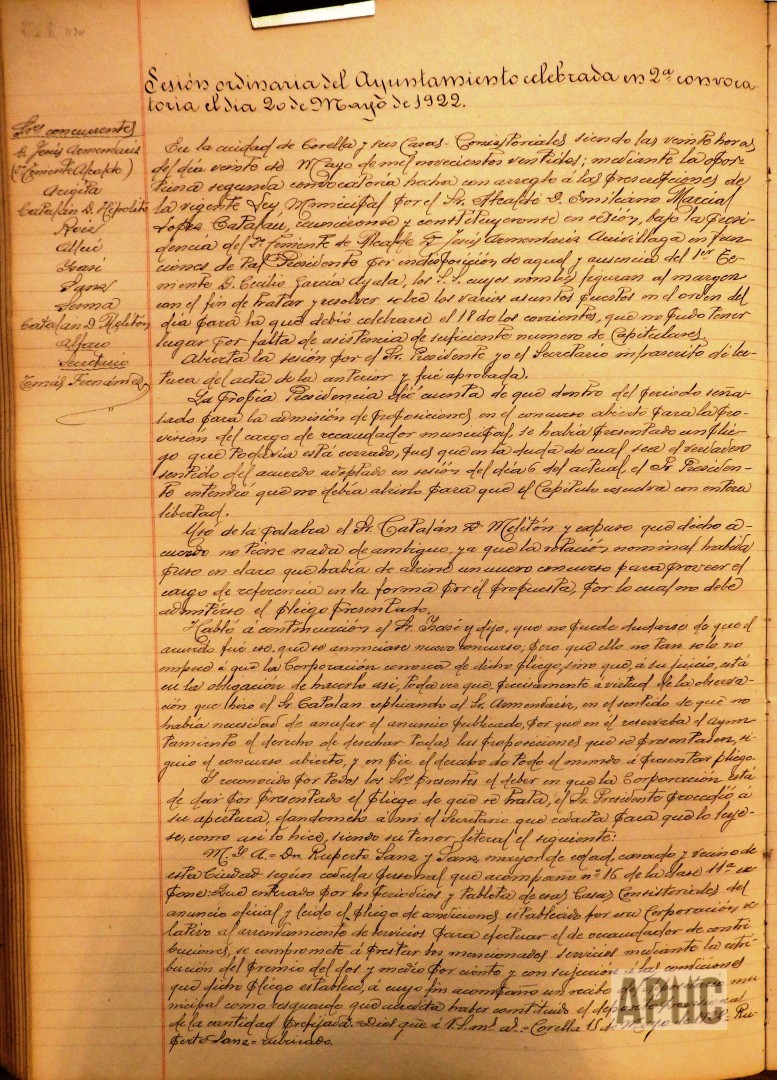 Sesión ordinaria del Ayuntamiento celebrada en 2ª convoca-
toria el dia 20 de Mayo de 1922.
Sres concurrentes
D. Jesús Armendariz
(Teniente Alcalde)
Catalán D. Hipolito
Ruiz
Allué
Ysasi
Sanz
Serma
Catalán D. Melitón
Alfaro
Secretario
Tomás Fernández
En la ciudad de Corella y sus Casas Consistoriales siendo las veinte horas
del día veinte de Mayo de mil novecientos veintidos; mediante la opor-
tuna segunda convocatoria hecha con arreglo á las prescripciones de
la vigente Ley Municipal por el Sr. Alcalde D. Emiliano Marcial
Lopez Catalán, reunieronse y constituyeronse en sesión, bajo la presi-
dencia del 2º Teniente de Alcalde D. Jesús Armendariz en fun-
ciones de tal Presidente por indisposición de aquel y ausencia del 1er Te-
niente D. Cecilio Garcia Ayala, los S.S. cuyos nombres figuran al margen
con el fin de tratar y resolver sobre los varios asuntos puestos en el orden del
día para la que debió celebrarse el 18 de los corrientes, que no pudo tener
lugar por falta de asistencia de suficiente numero de Capitulares.
Abierta la sesión por el Sr. Presidente yo el Secretario infrascrito dí lec-
tura del acta de la anterior y fué aprobada.
La propia Presidencia dió cuenta de que dentro del periodo seña-
lado para la admisión de proposiciones en el concurso abierto para la pro-
visión del cargo de recaudador municipal, se había presentado un plie-
go que todavía está cerrado, pues que en la duda de cual sea el verdadero
sentido del acuerdo adoptado en sesión del día 6 del actual, el Sr. Presiden-
te entendió que no debía abrirlo para que el Capitulo resuelva con entera
libertad.
Usó de la palabra el Sr. Catalán D. Melitón y expuso que dicho a-
cuerdo no tiene nada de ambiguo, ya que la votación nominal habida
puso en claro que había de abrirse un nuevo concurso para proveer el
cargo de referencia en la forma por él propuesta, por lo cual no debe
admitirse el pliego presentado.
Habló á continuación el Sr. Ysasi y dijo, que no puede dudarse de que el
acuerdo fué ese, que se anunciase nuevo concurso, pero que ello no tan solo no
empece á que la Corporación conozca de dicho pliego, sino que, á su juicio, está
en la obligación de hacerlo así, toda vez que, precisamente á virtud de la observa-
ción que hizo el Sr. Catalan replicando al Sr. Armendariz, en el sentido de que no
había necesidad de anular el anuncio publicado, por que en él reservaba el Ayun-
tamiento el derecho de desechar todas las proposiciones que se presentasen, si-
guió el concurso abierto, y en pié el derecho de todo el mundo á presentar pliego.
Y reconocido por todos los Sres presentes el deber en que la Corporación está
de dar por presentado el pliego de que se trata, el Sr. Presidente procedió á
su apertura, dandomelo á mi el Secretario que redacta para que lo leye-
se, como así lo hice, siendo su tenor literal el siguiente:
M. Y. A. = Dn. Ruperto Sanz y Sanz mayor de edad, casado y vecino de
esta Ciudad según cedula personal que acompaño nº 16 de la clase 11ª ex-
pone: Que enterado por los periodicos y tablota de esas Casas Consistoriales del
anuncio oficial y leido el pliego de condiciones establecido por esa Corporación, re-
lativo al arrendamiento de servicios para efectuar el de recaudador de contri-
buciones, se compromete á prestar los mencionados servicios mediante la retri-
bución del premio del dos y medio por ciento y con sujeción á las condiciones
que dicho pliego establece, á cuyo fin acompaño un recibo del Depositario mu-
nicipal como resguardo que acredita haber constituido el deposito provisional
de la cantidad prefijada = Dios gue á V.S. ms as. = Corella 15 de Mayo de 1922 = Ru-
perto Sanz = rubricado.
APHC